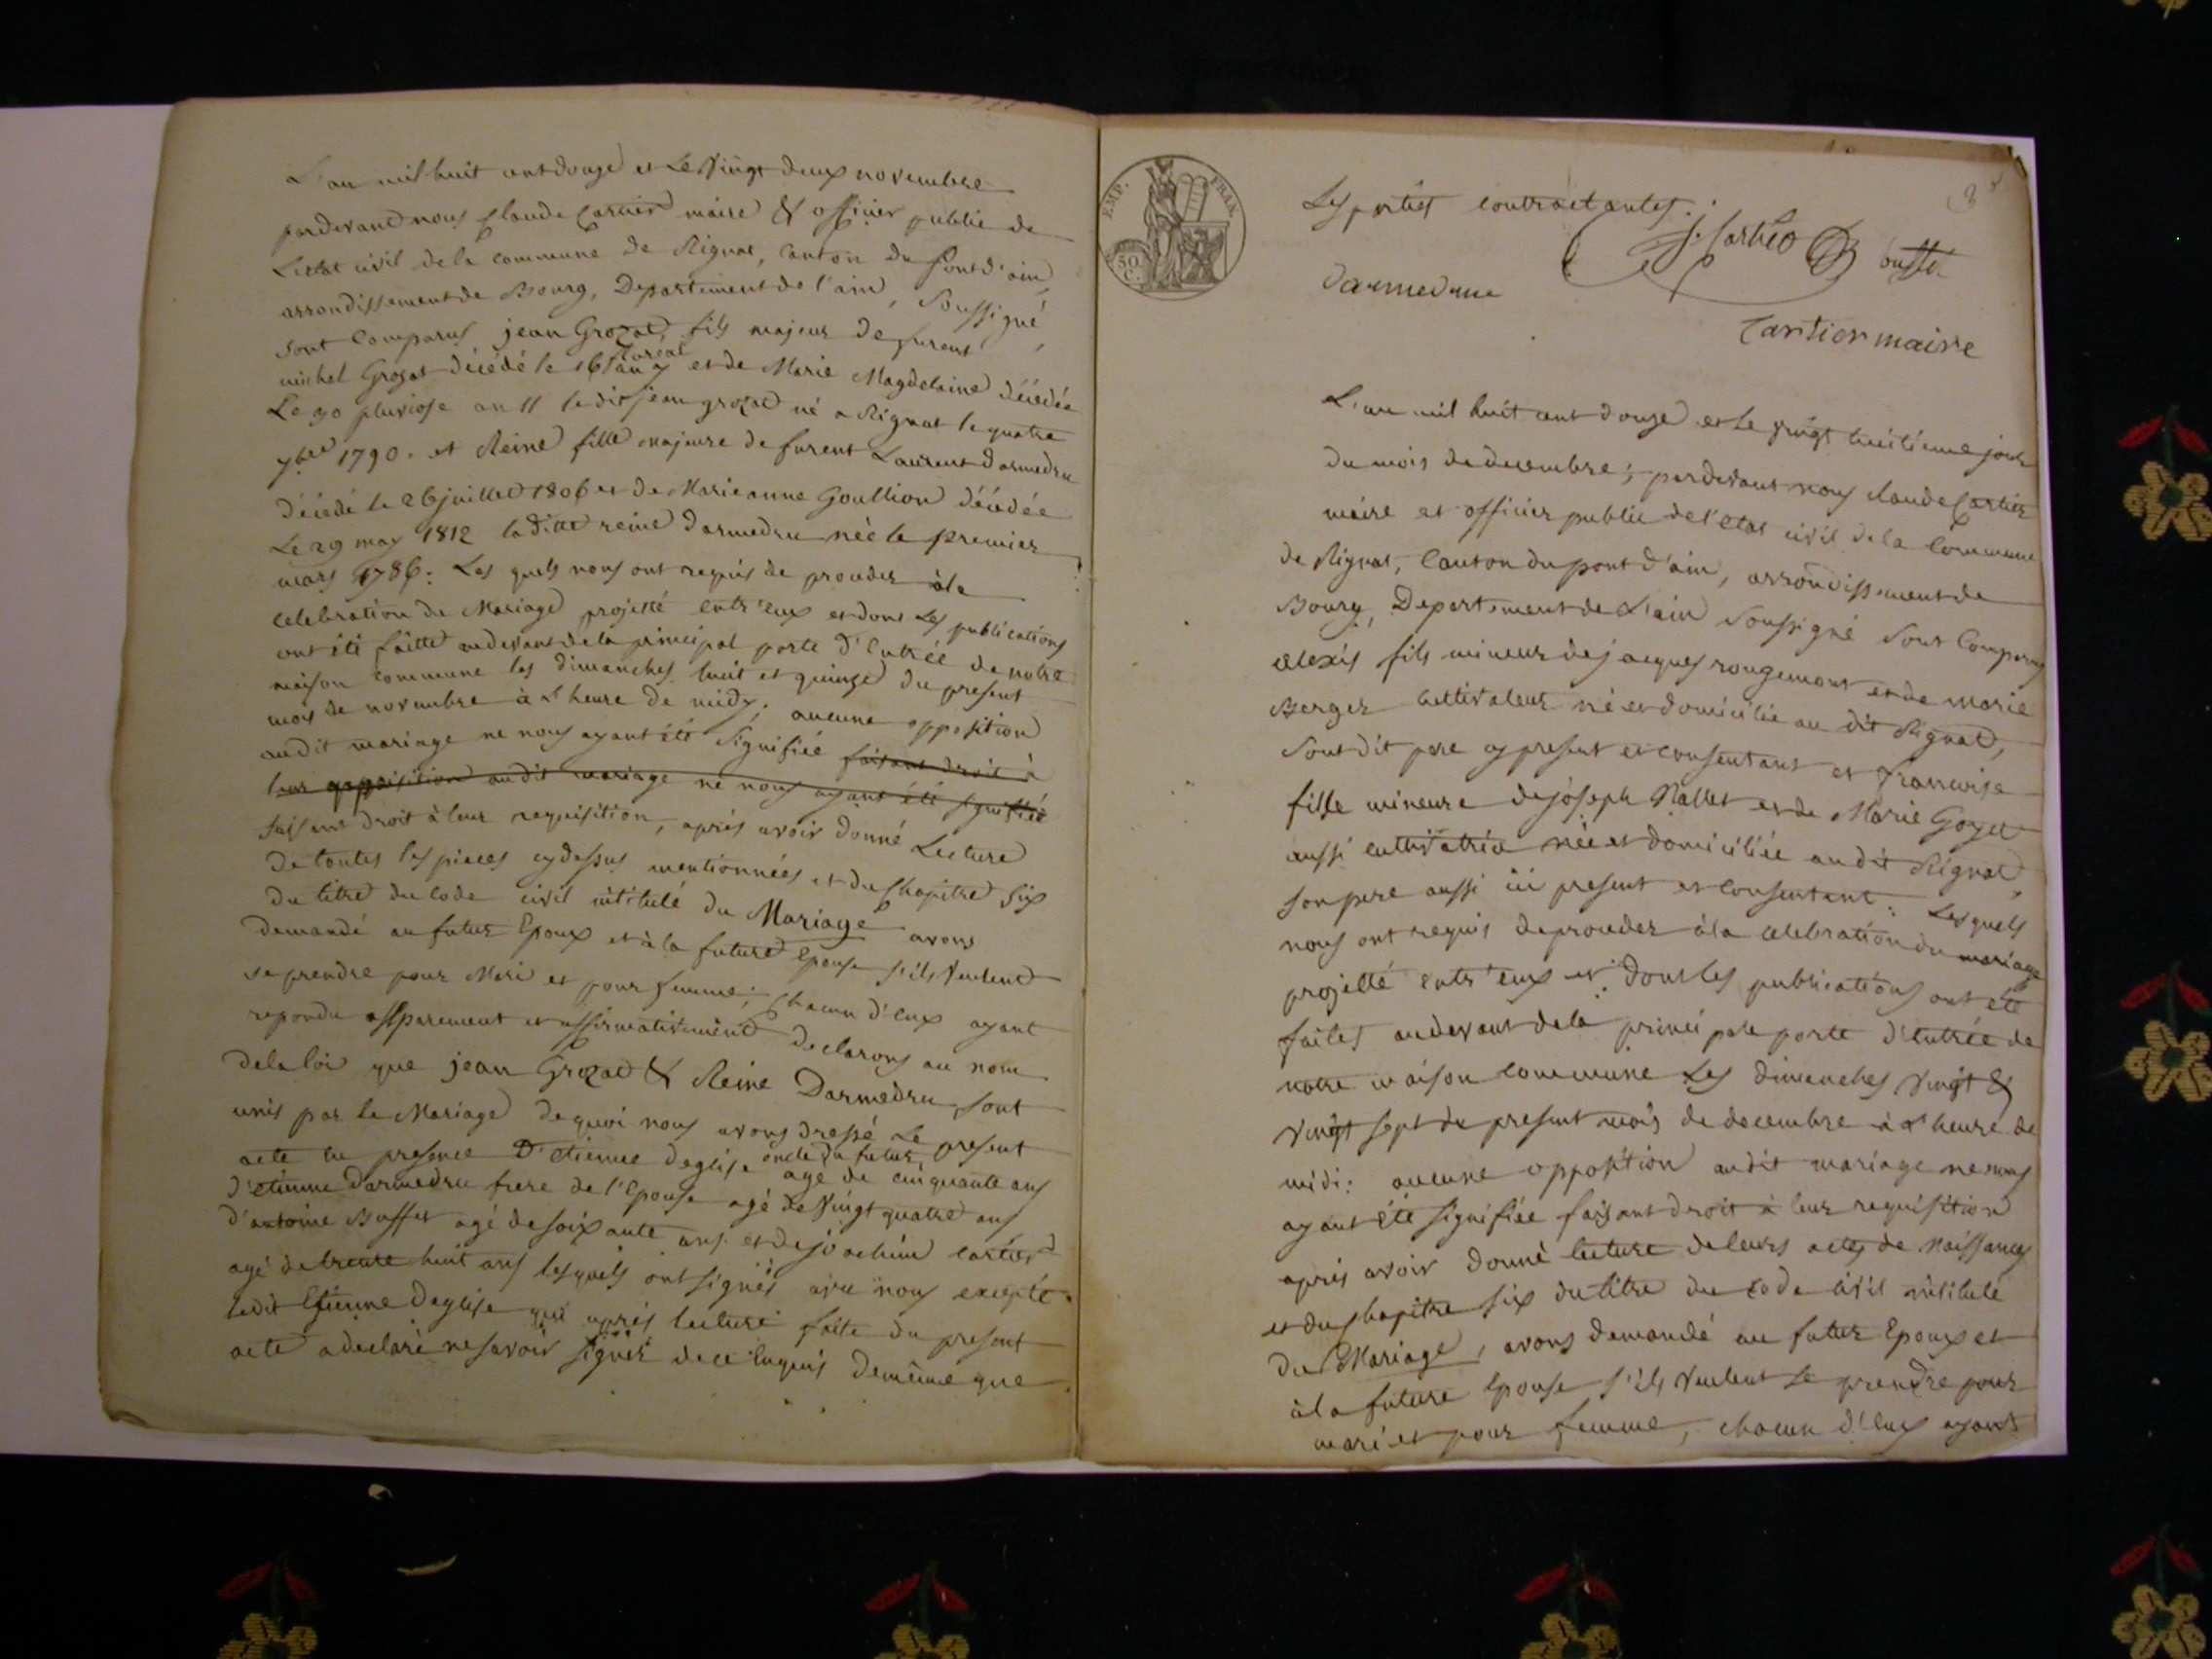 L'an mil huit cent douze et Le Vingt deux novembre
pardevand nous Claude Cartier maire & officier public de
L'etat civil de la commune de Rignat, canton du pont d'ain,
arrondissement de Bourg, Departement de l'ain, Soussigné,
sont Comparus jean Grozat, fils majeur de furent
michel Grozat décédé le 16 floreal an 7 et de Marie Magdelaine décédée
Le 30 pluviose an 11 le dit jean grozat né a Rignat le quatre
7bre 1790. et Reine fille majeure de furent Laurent darmedru
décédé le 26 juillet 1806 et de Marieanne Goullion décédée
Le 29 may 1812 la ditte reine darmedru née le premier
mars 1786: Les quels nous ont requis de proceder à la
celebration du Mariage projetté entr'eux et dont Les publications
ont été faitte audevant de la principal porte d'Entrée de notre
maison commune les dimanches huit et quinze du present
mois de novembre à l'heure de midy; aucune opposition
audit mariage ne nous ayant été signifiée faisant droit à
leur opposition audit mariage ne nous ayant été signifiée
faisant droit à leur requisition, après avoir donné Lecture
de toutes les pieces cy dessus mentionnées et du Chapitre Six
du titre du Code civil intitulé du Mariage avons
demandé au futur Epoux et à la future Epouse s'ils Veulent
se prendre pour Mari et pour femme; Chacun d'eux ayant
repondu et affirmativement declarons au nom
de la loi que jean Grozat & Reine Darmedru, sont
unis par le Mariage de quoi nous avons dressé Le present
acte en presence D'etienne deglise oncle du futur, agé de cinquante ans
d'etienne Darmedru frere de l'Epouse agé de Vingt quatre ans
d'antoine Buffet agé de soixante ans et de joachim cartier
agé de trente huit ans lesquels ont signés avec nous excepté
ledit Etienne deglise qui après lecture faite du present
acte a declaré ne savoir signer de ce Enquis demême que
Les parties contractantes.
J. Carthéo Bouffet
darmedrue
Cartier maire
L'an mil huit cent douze et le vingt huitième jour
du mois de decembre; pardevant nous claude Cartier
maire et officier public de l'etat civil de la Commune
de Rignat, Canton du pont d'ain, arrondissement de
Bourg, Departement de L'ain Soussigné Sont Comparus
alexis fils mineur de jacques rougemont et de Marie
Berger cultivateur né et domicilié au dit Rignat,
Sont dit pere cy present et consentant et francoise
fille mineure de joseph Nallet et de Marie Goyet
aussi cultivatrice née et domiciliée audit Rignat,
son pere aussi ici present et consentant: Lesquels
nous ont requis de proceder à la celebration du mariage
projetté entr'eux et dont les publications ont été
faites audevant de la principale porte d'Entrée de
notre maison commune Les dimanches Vingt &
Vingt sept du present mois de decembre à l'heure de
midi: aucune opposition audit mariage ne nous
ayant été signifiée faisant droit à leur requisition
après avoir donné lecture de leurs actes de Naissances
et du chapitre six du titre du code civil intitulé
Du Mariage, avons demandé au futur Epoux et
à la future Epouse s'ils veulent se prendre pour
mari et pour femme, chacun d'Eux ayant
EMP. FRAN.
50
C.